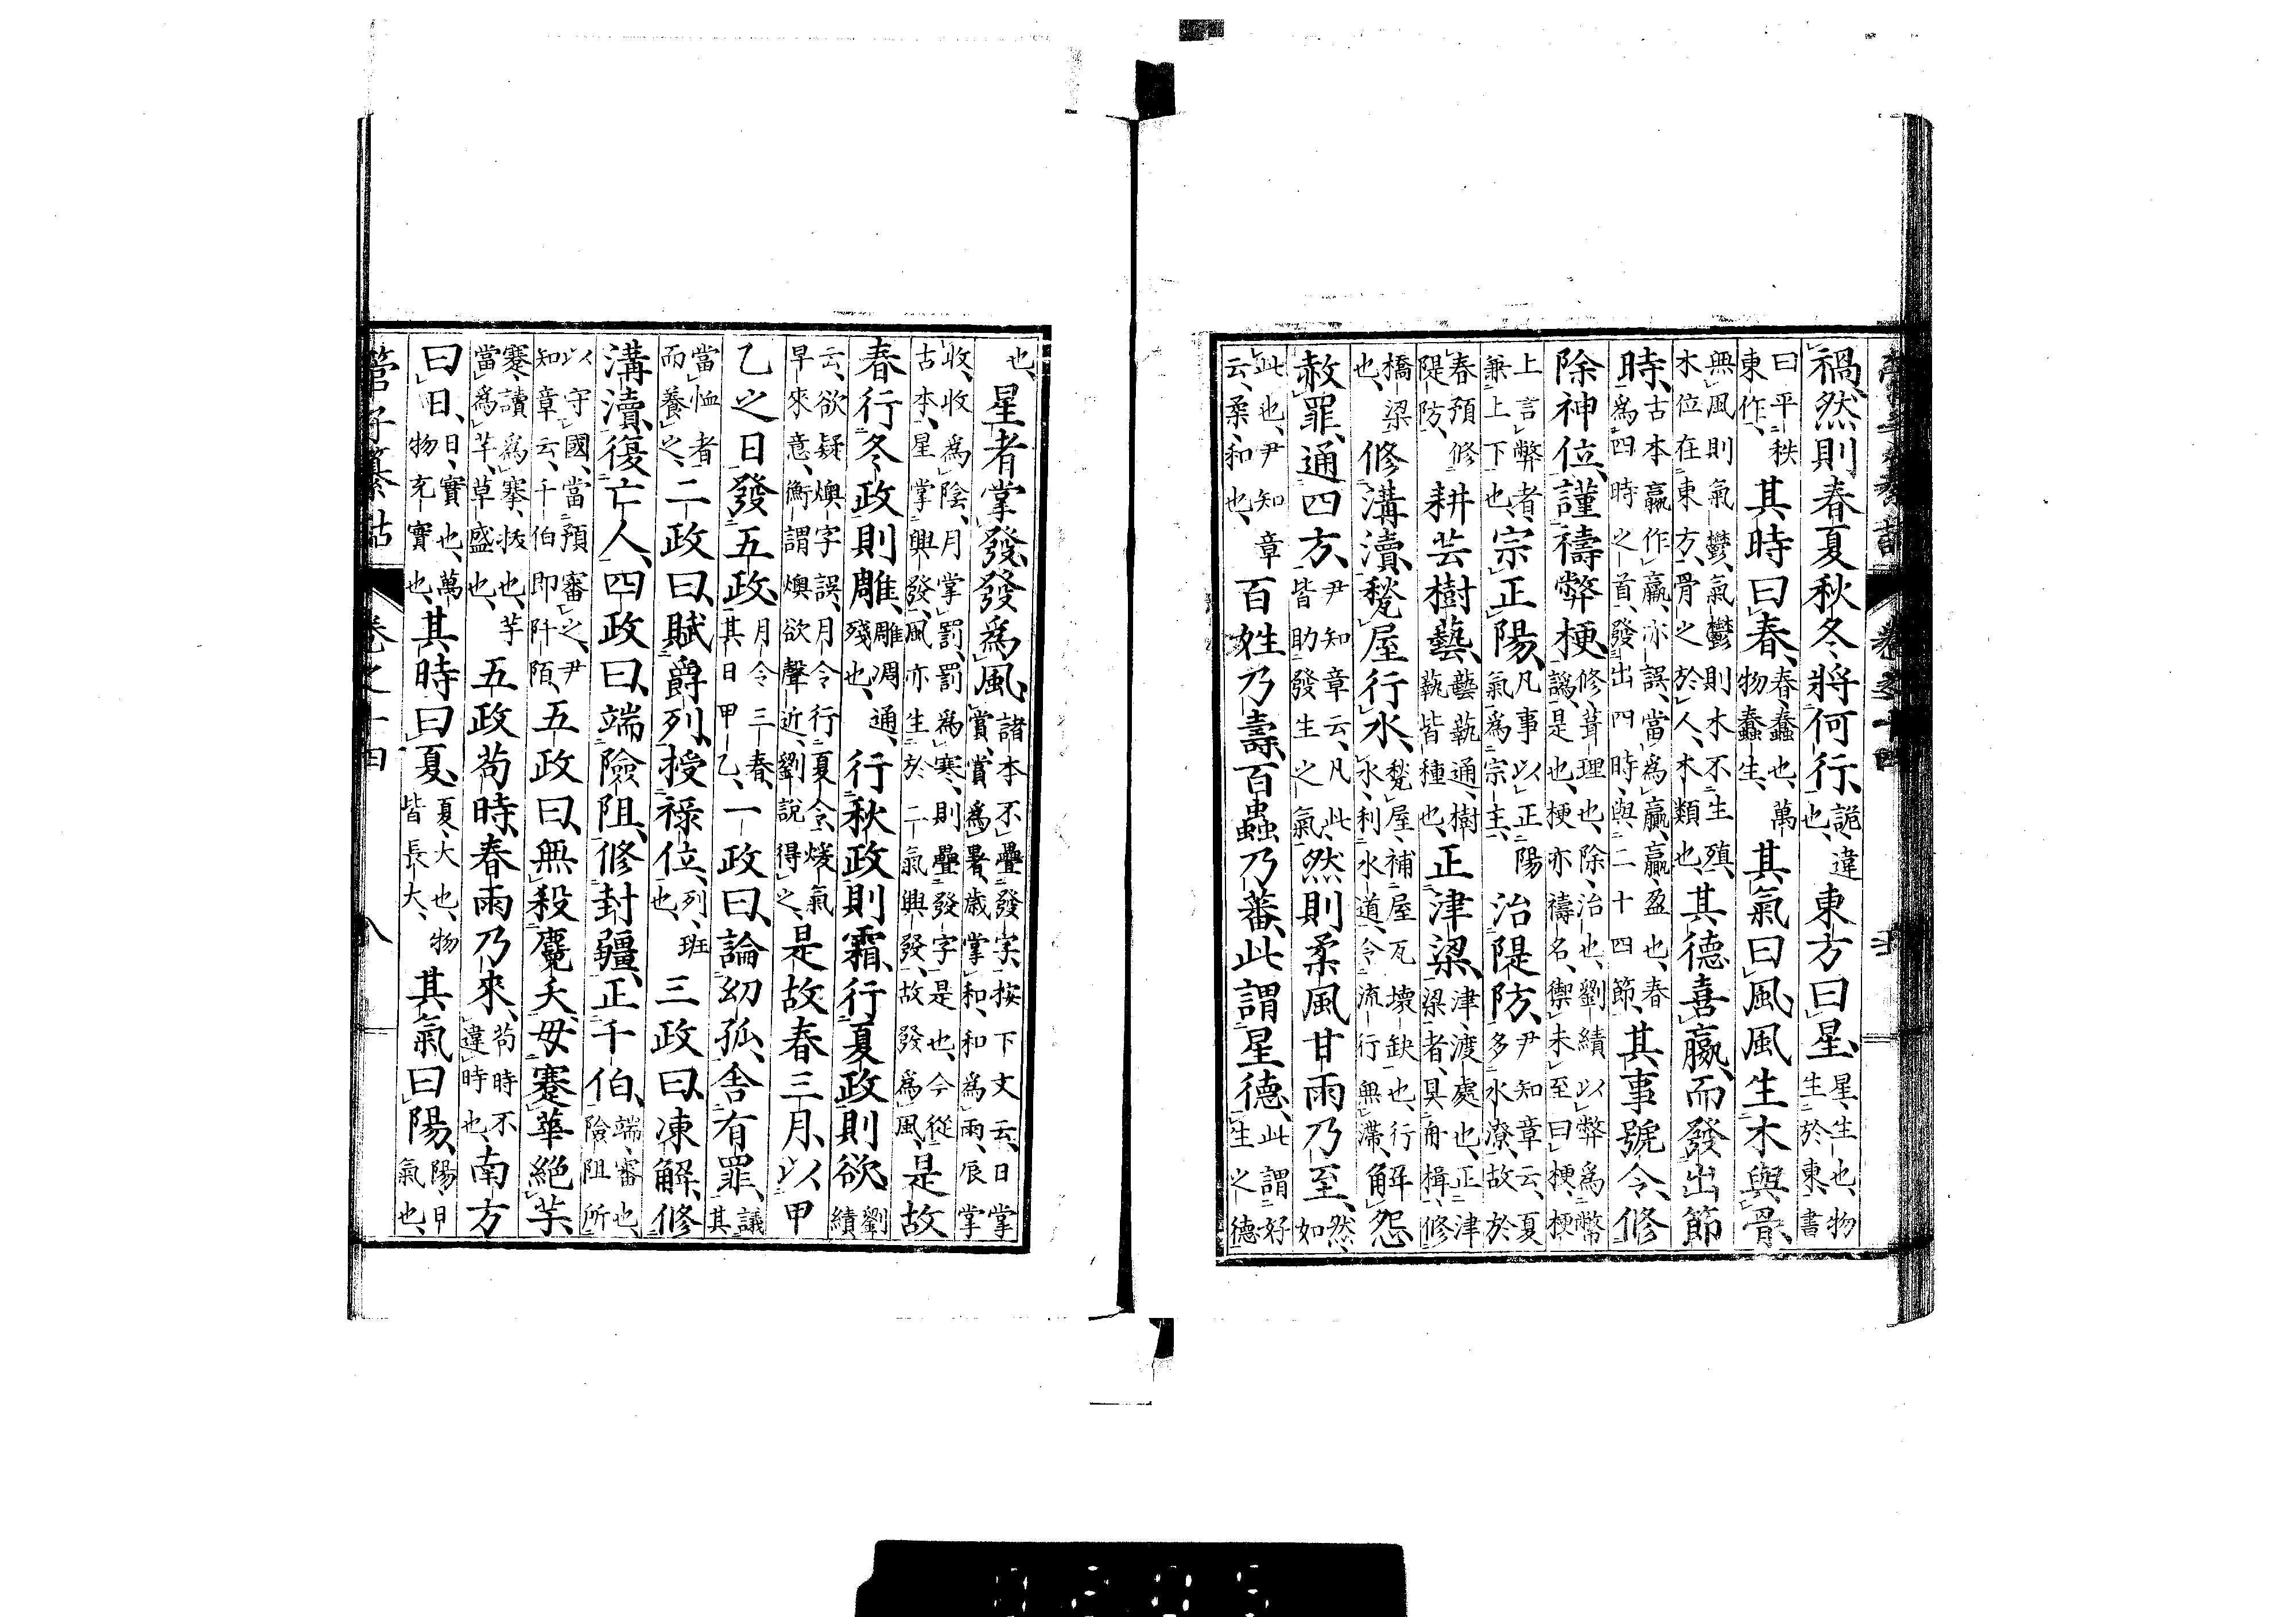 禍、然則春夏秋冬將何行、詭、違也、東方曰星、星、生也、物生於東、書
曰平秩東作、其時曰春、春、蠢也、萬物蠢生、其氣曰風、風生木與骨、
無風則氣鬱、氣鬱則木不生殖、木位在東方、骨之於人、木類也、其德喜嬴、而發出節
時、古本嬴作贏、亦誤、當為贏、贏、盈也、春為四時之首、發出四時、與二十四節、其事號令、修
除神位、謹禱弊梗、修、葺理也、除、治也、劉績以弊為幣譌、是也、梗亦禱名、禦未至曰梗、梗
上言弊者、兼上下也、宗正陽、凡事以正陽氣為宗主、治隄防、尹知章云、夏多水潦、故於
春預修隄防、耕芸樹藝、藝蓺通、樹蓺皆種也、正津梁、津、渡處也、正津梁者、具舟楫、修
橋梁也、修溝瀆、甃屋行水、甃屋、補屋瓦壞缺也、行水、利水道、令流行無滯、解怨
赦罪、通四方、尹知章云、凡此皆助發生之氣、然則柔風甘雨乃至、然、如
此也、尹知章云、柔、和也、百姓乃壽、百蟲乃蕃、此謂星德、此謂好生之德
也、星者掌發、發為風、諸本不疊發字、按下文云、日掌賞、賞為暑、歲掌和、和為雨、辰掌
收、收為陰、月掌罰、罰為寒、則疊發字是也、今從古本、星掌興發、風亦生於二氣興發、故發為風、是故
春行冬政則雕、雕凋通、殘也、行秋政則霜、行夏政則欲、劉績
云、欲疑燠字誤、月令行夏令、煖氣早來意、衡謂燠欲聲近、劉說得之、是故春三月、以甲
乙之日發五政、月令三春、其日甲乙、一政曰、論幼孤、舍有罪、議其
當恤者而養之、二政曰、賦爵列、授祿位、列、班也、三政曰、凍解、修
溝瀆、復亡人、四政曰、端險阻、修封疆、正千伯、端、審也、險阻所
以守國、當預審之、尹知章云、千伯即阡陌、五政曰、無殺麑夭、毋蹇華絕芓、
蹇、讀為搴、搴、拔也、芓當為芉、草盛也、五政苟時、春雨乃來、苟時不違時也、南方
曰日、日、實也、萬物充實也、其時曰夏、夏、大也、物皆長大、其氣曰陽、陽、日氣也、
管子纂詁 卷之十四 八